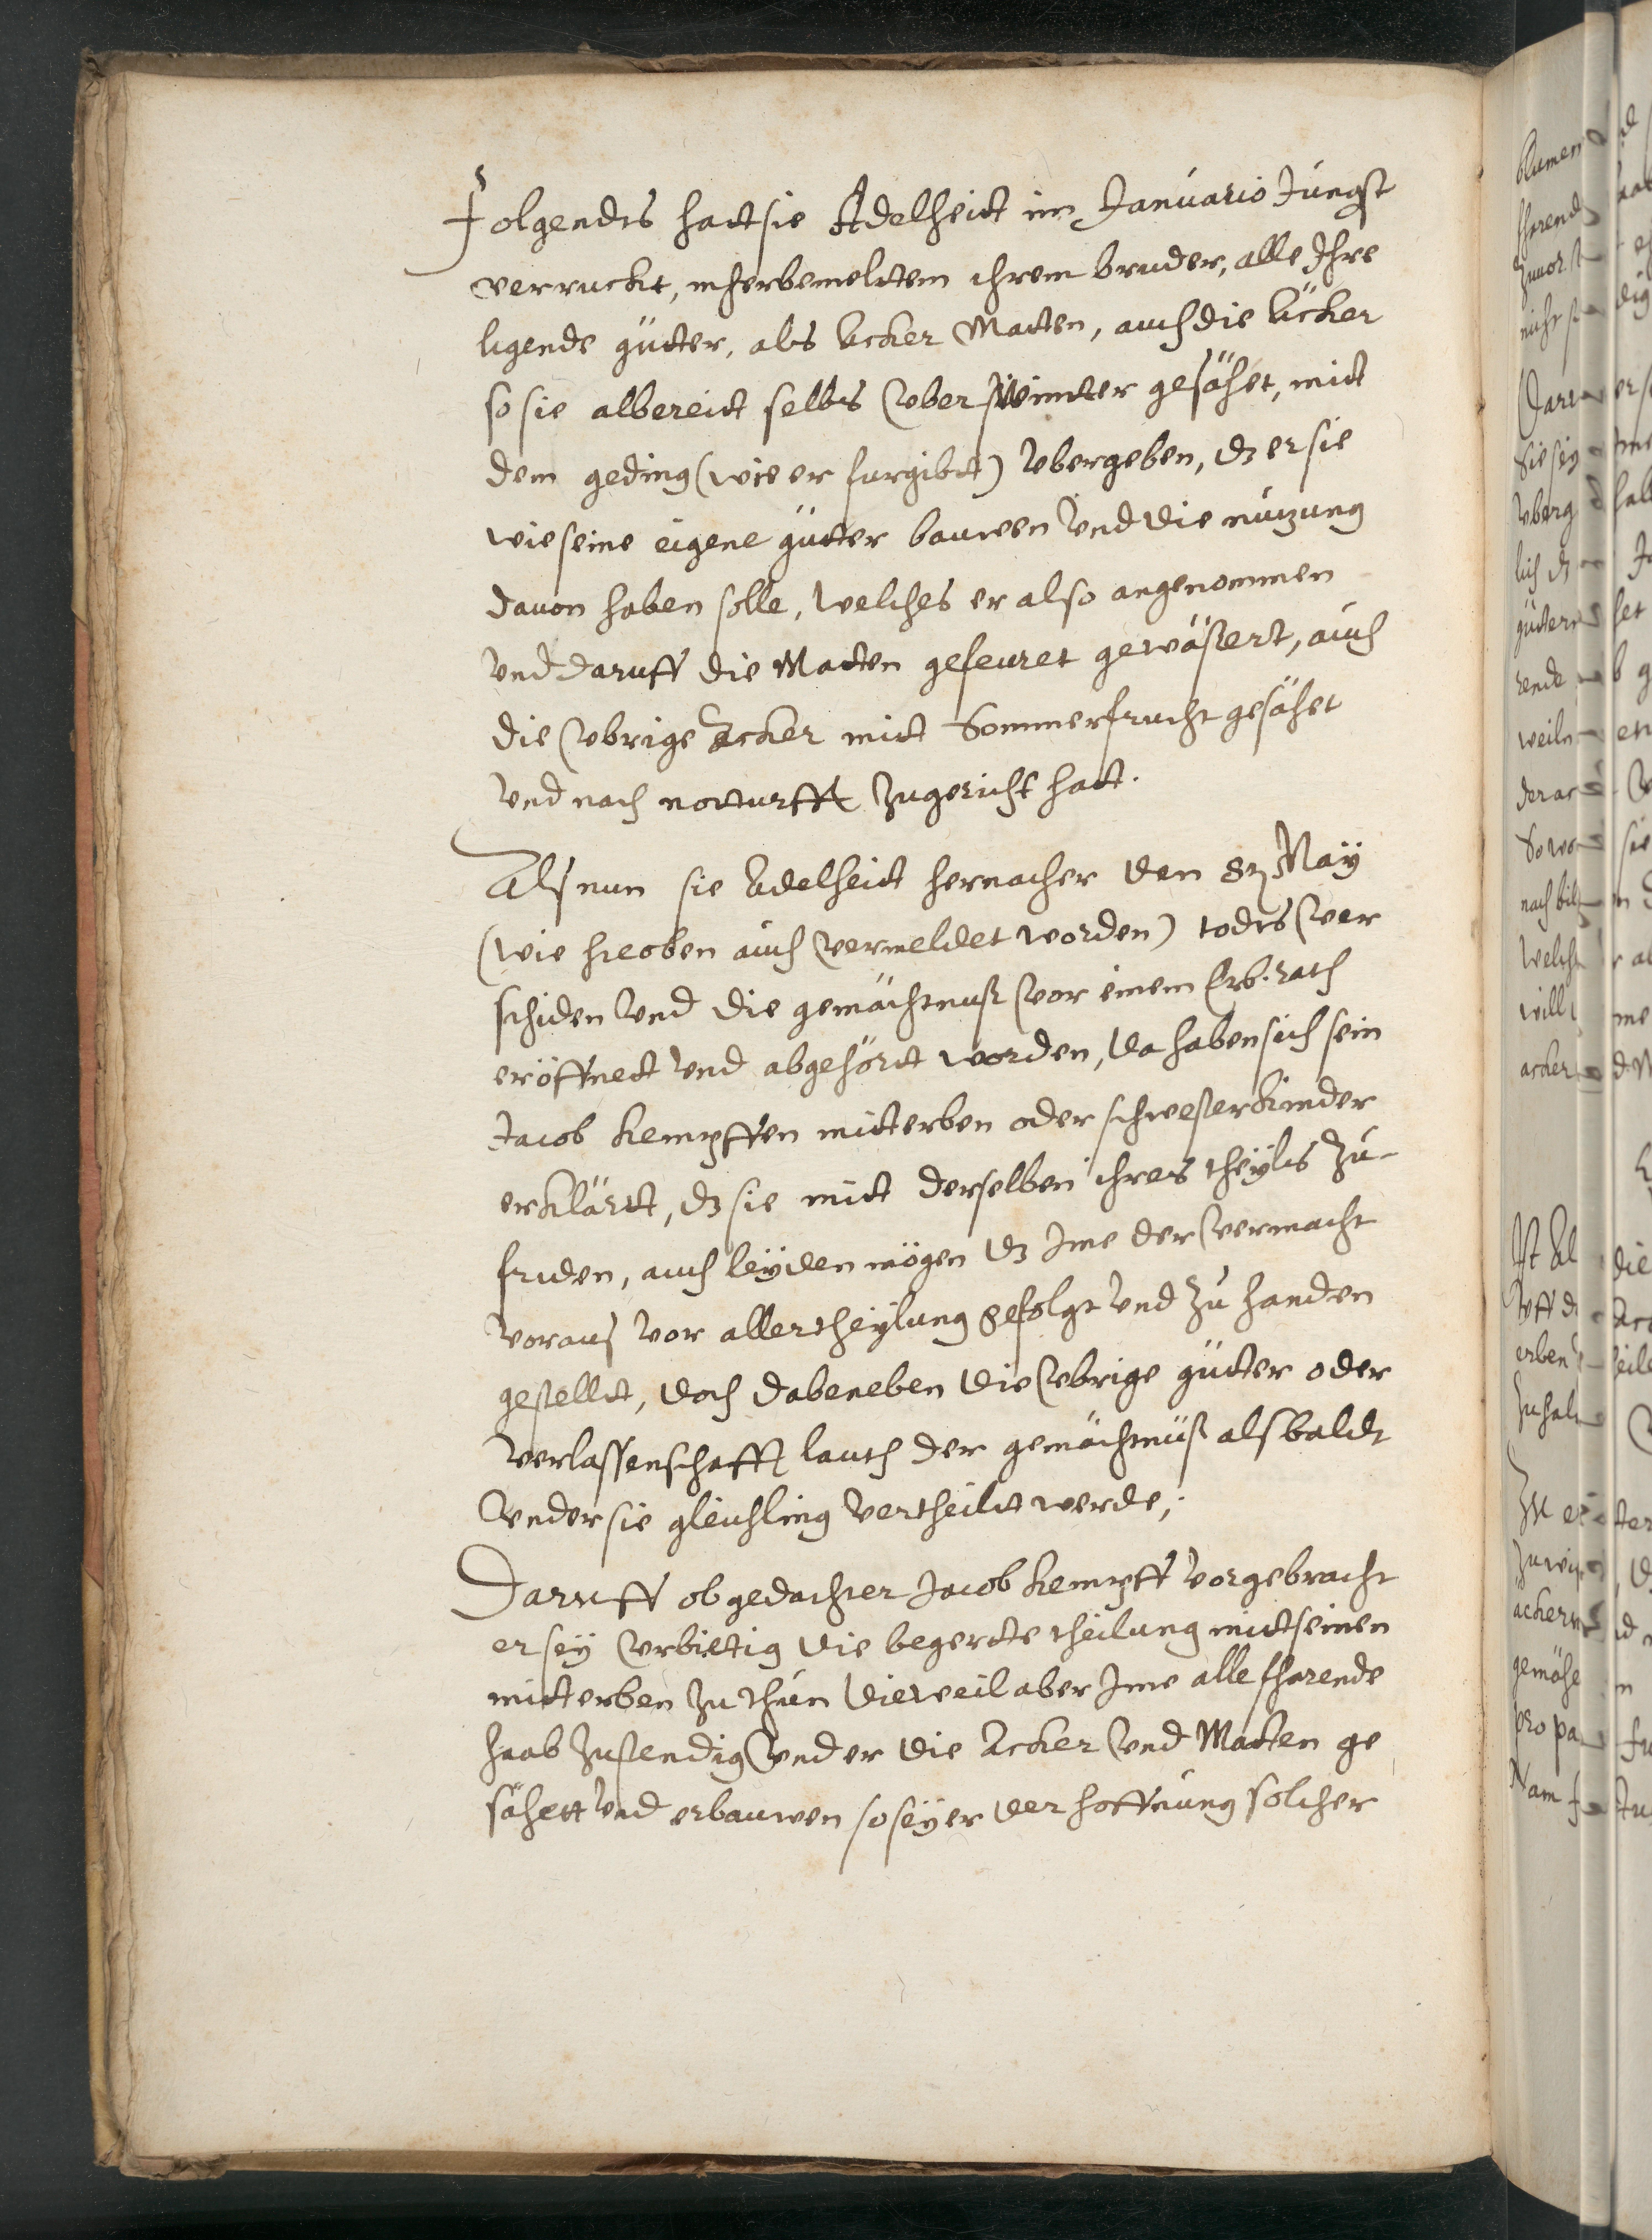 Folgendts hatt sie Adelheidt im Januario Jüngst
verruckt, mherbemeltem ihrem bruder, alle Ihre
ligende gütter, als Acker Matten, auch die Äcker
so sie albereit selbs über winter gesähet, mit
dem geding (wie er furgibt) übergeben, dz er sie
wie seine eigene gütter bauwen und die nutzung
davon haben solle, welches er also angenommen
und daruff die Matten geseuret gewässert, auch
die übrige Äcker mit Sommerfrucht gesähet
und nach notturfft zugericht hatt.
Als nun sie Adelheidt hernacher den May
(wie hieoben auch vermeldet worden) todts ver
schiden und die gemächtnuß vor einem Erb. rath
eröffnet und abgehört worden, da haben sich sein
Jacob Kempffen mitterben oder schwesterkinder
erklärt, dz sie mit derselben ihres theyls zu-
friden, auch leyden mögen dz Ime der vermacht
voraus vor aller theylung gefolgt und zu handen
gestellt, doch dabeneben die übrige gütter oder
verlassenschafft lauth der gemächtnüß alsbaldt
under sie gleichling vertheilt werde;
Daruff obgedachter Jacob Kempff vorgebracht
er sey urbiettig die begerte theilung mitt seinen
mitterben zu thun dieweil aber Ime alle fharende
haab zustendig und er die Acker und Matten ge
sähett und erbauwen so sey er der hoffnung solcher